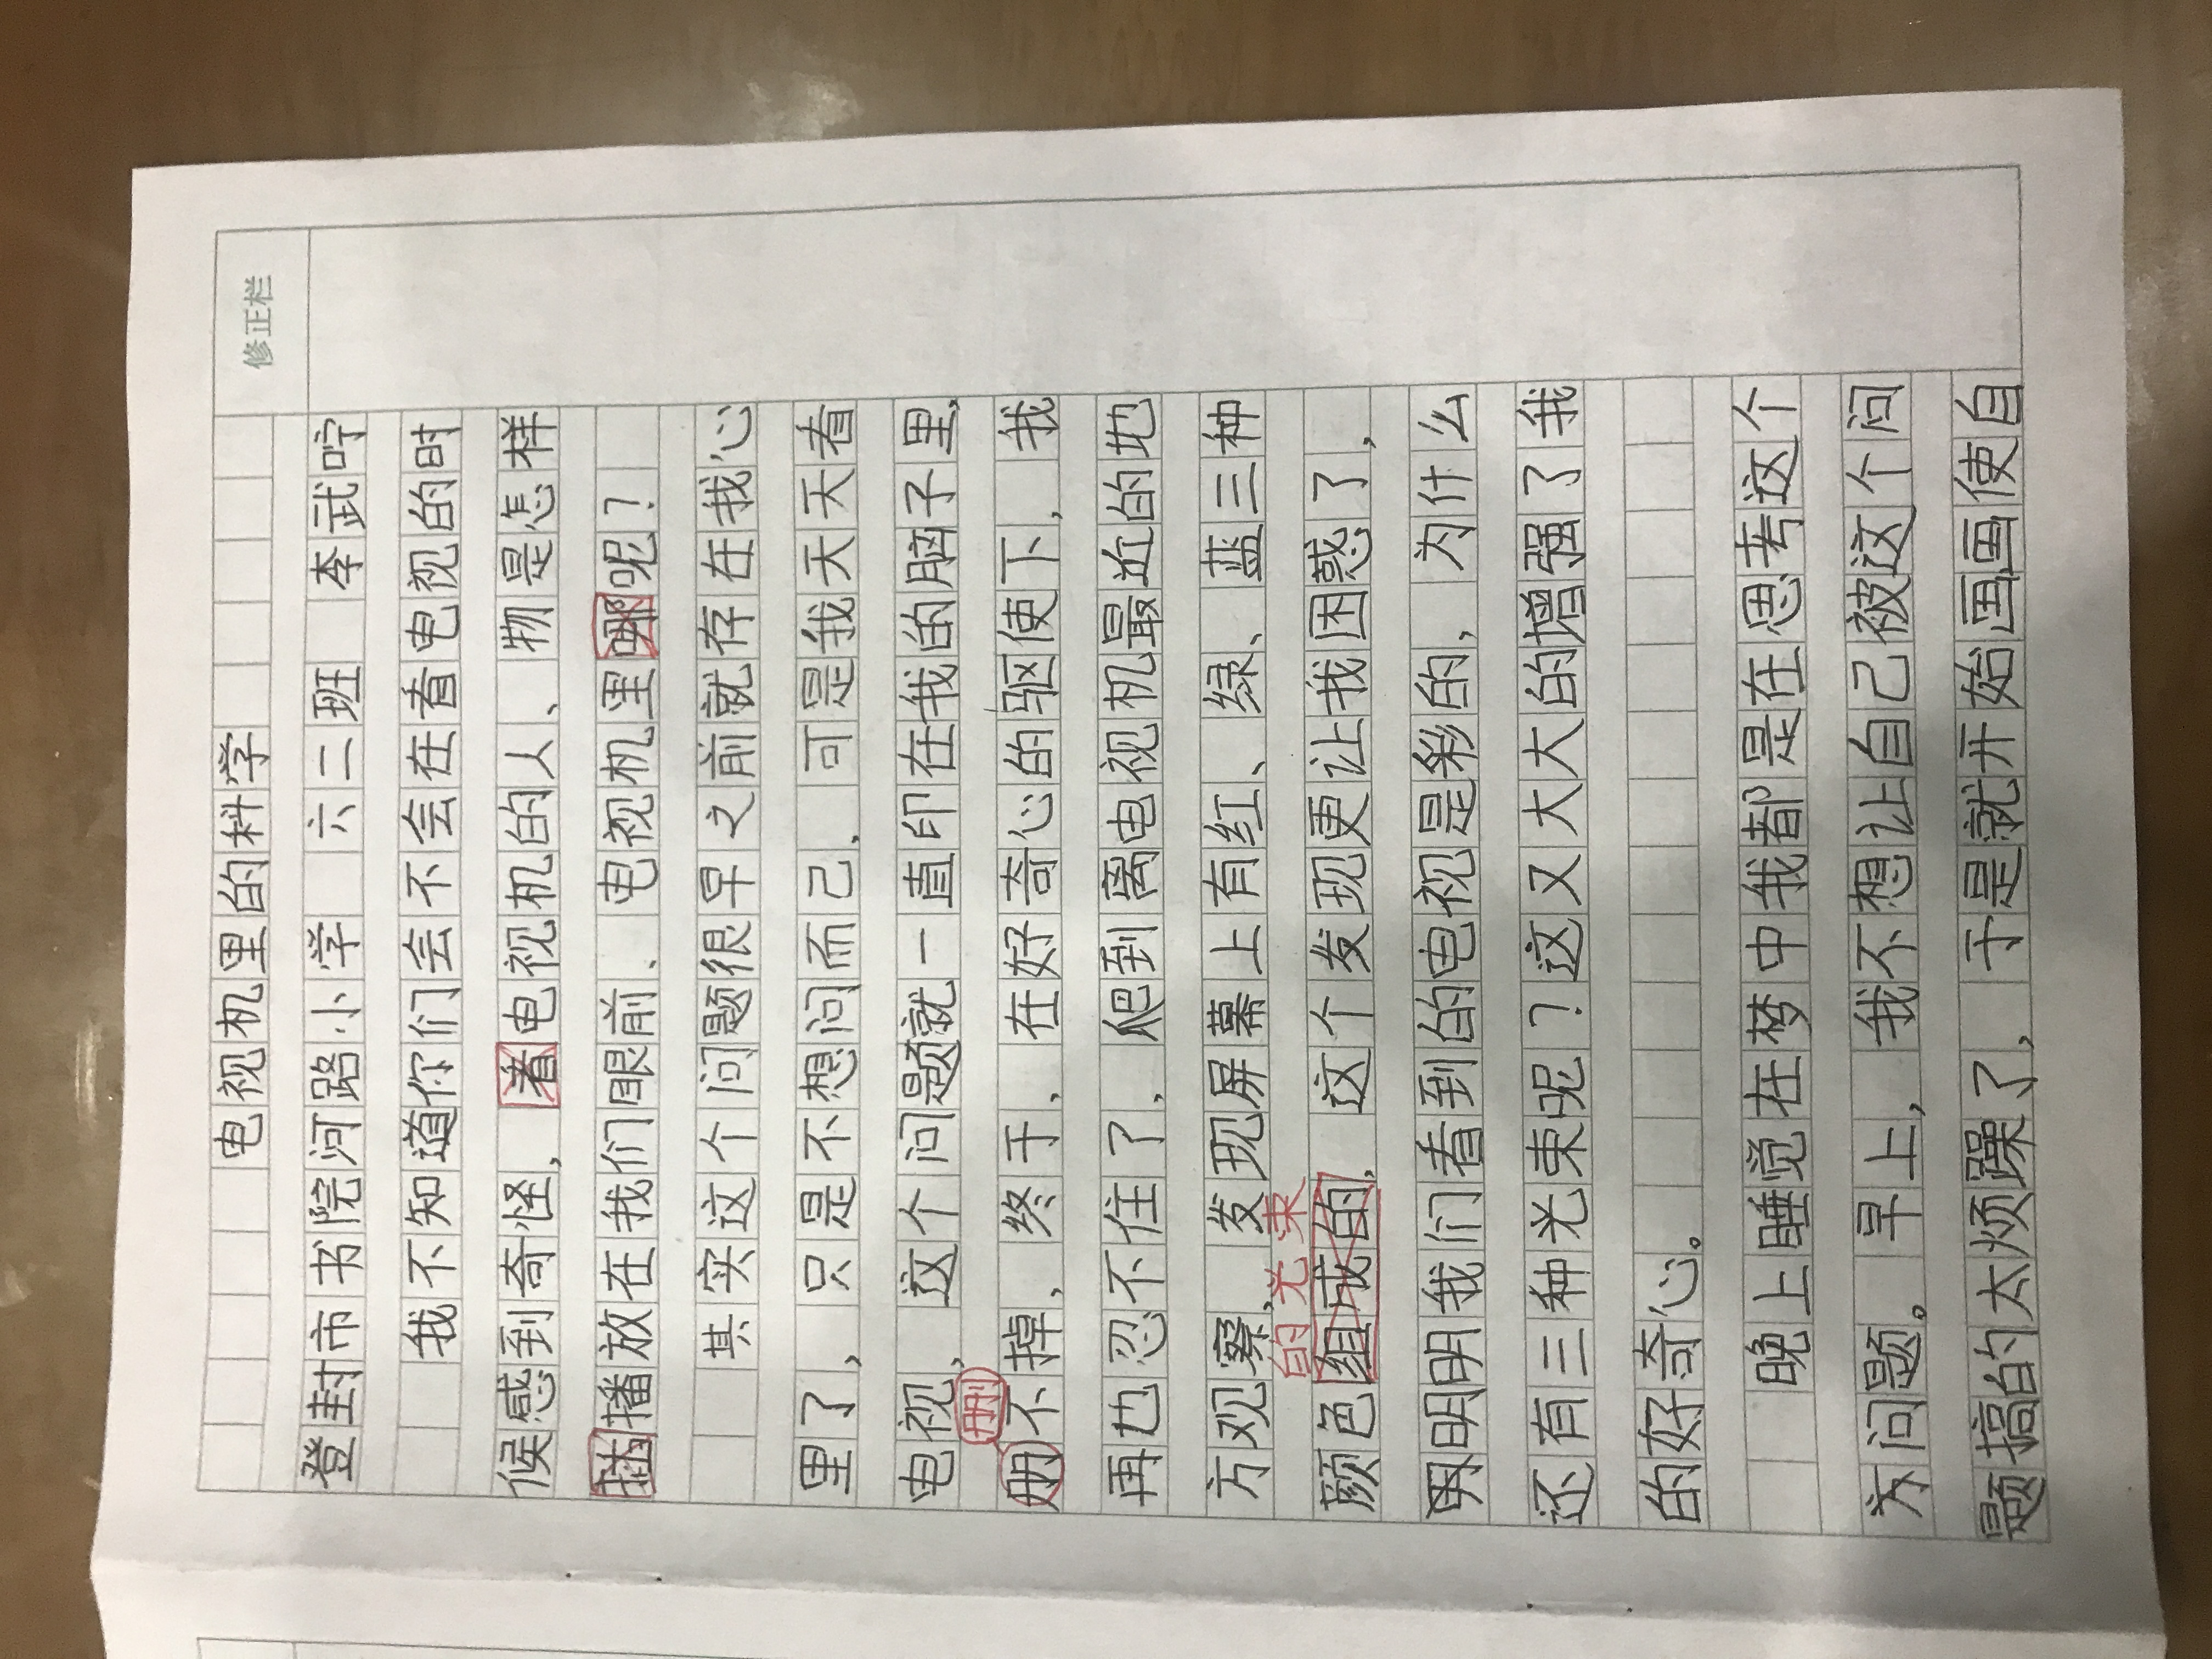 修正栏
电视机里的科学
登封市书院河路小学 六二班 李武咛
我不知道你们会不会在看电视的时
候感到奇怪，着电视机的人、物是怎样
插播放在我们眼前、电视机里哪呢？
其实这个问题很早之前就存在我心
里了，只是不想问而己，可是我天天看
电视，这个问题就一直印在我的脑子里，
删
册不掉，终于，在好奇心的驱使下，我
再也忍不住了，爬到离电视机最近的地
方观察，发现屏幕上有红、绿、蓝三种
的光束
颜色组成的，这个发现更让我困惑了，
明明我们看到的电视是彩的，为什么
还有三种光束呢？这又大大的增强了我
的好奇心。
晚上睡觉在梦中我都是在思考这个
问题。早上，我不想让自己被这个问
题搞的太烦躁了，于是就开始画画使自